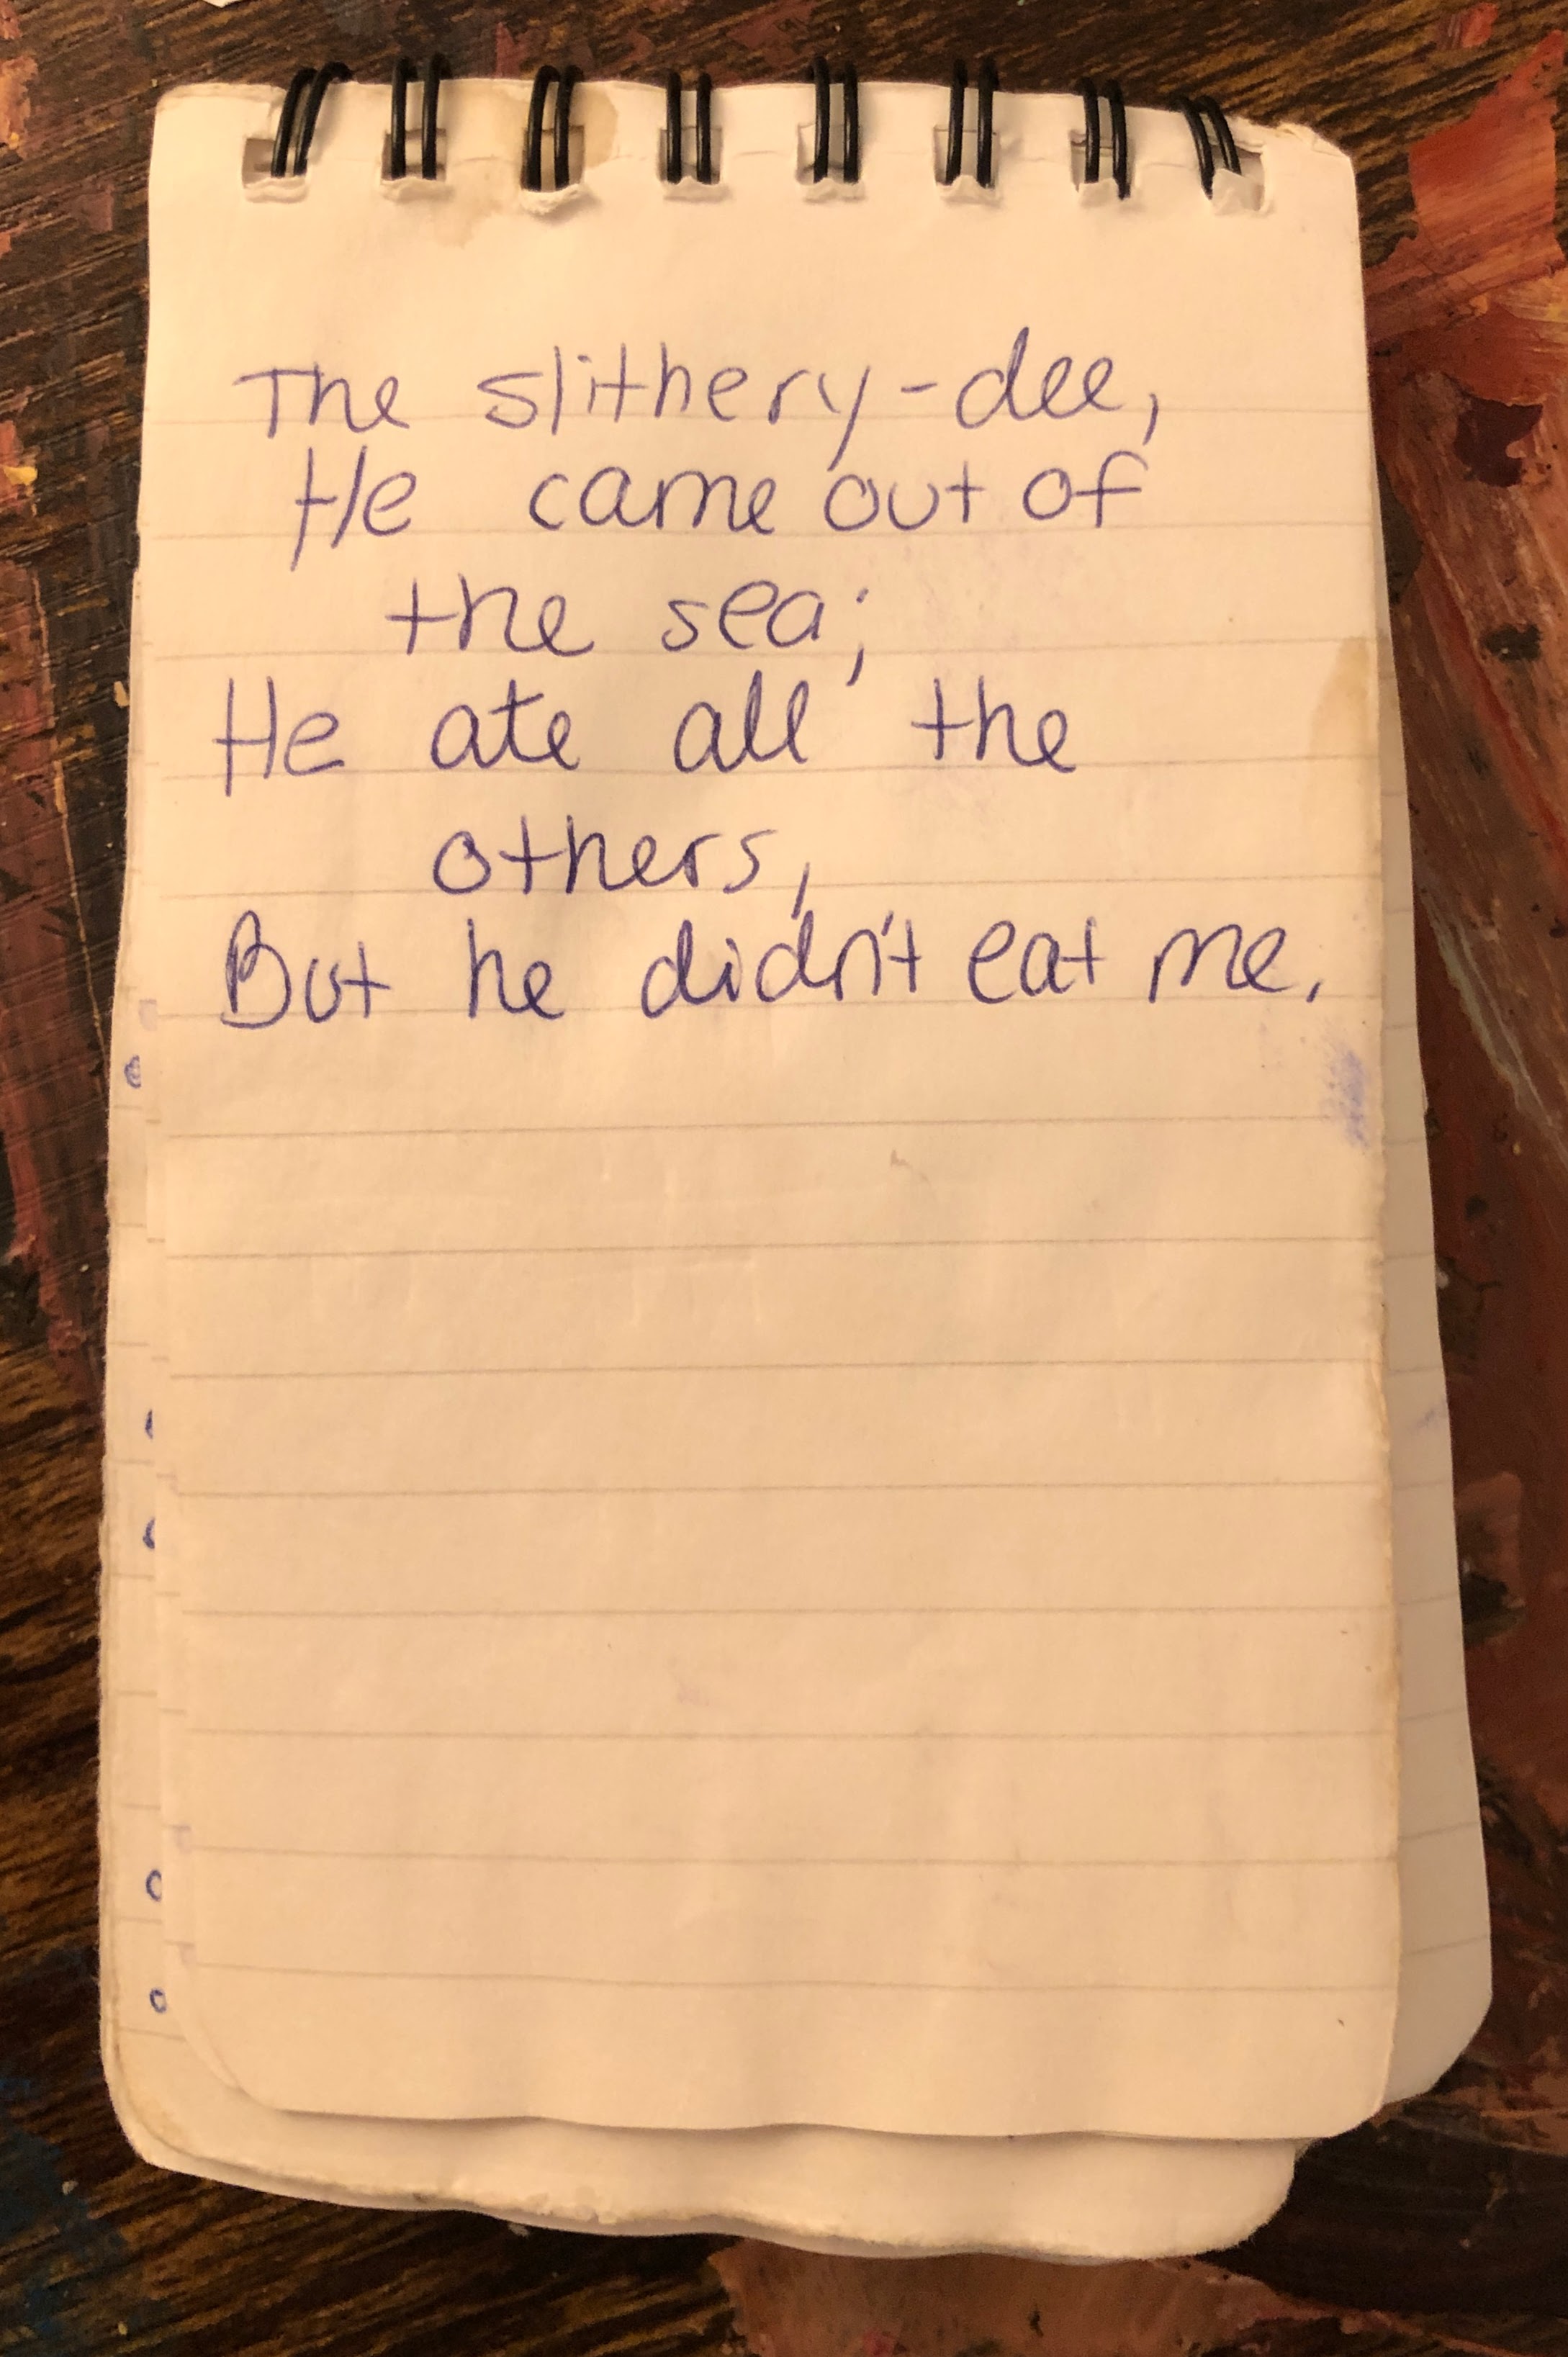 The slithery-dee,
He came out of
the sea;
He ate all the
others,
But he didn't eat me.